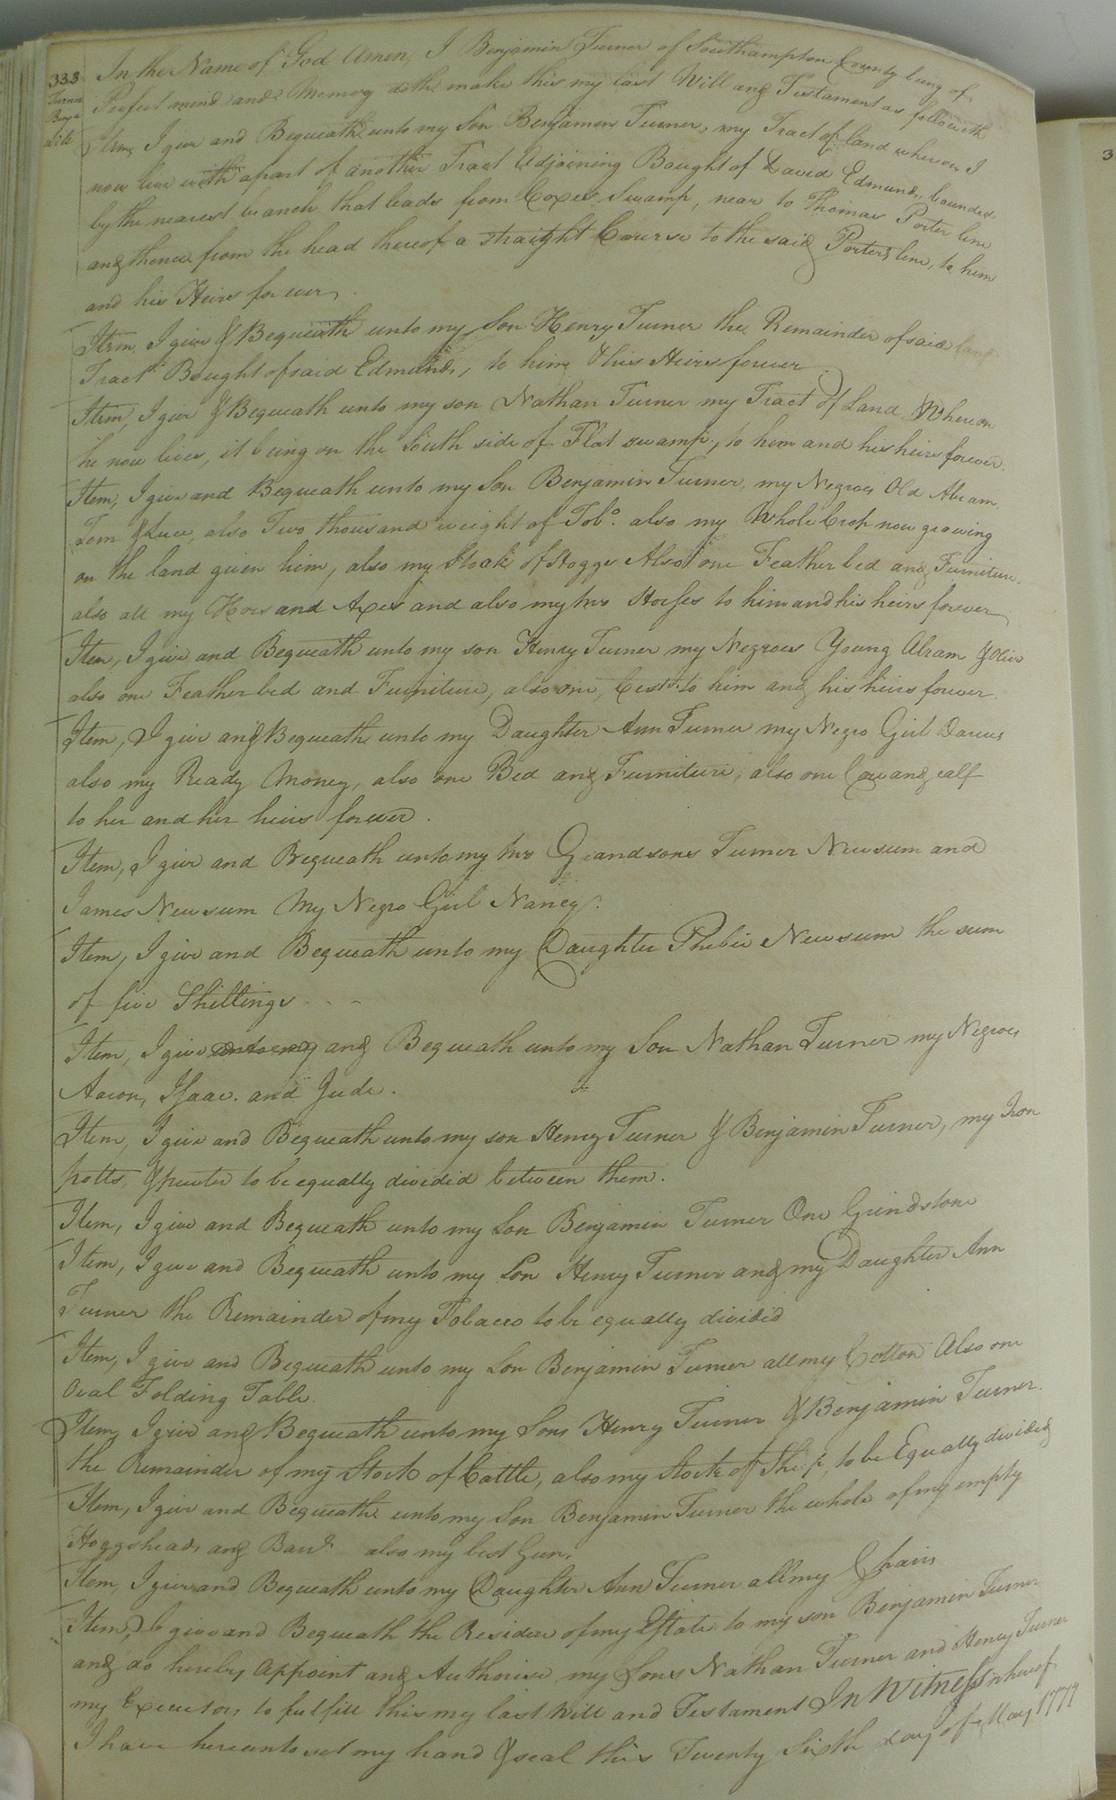 333
Turner
Benja
Will
In the Name of God Amen, I Benjamin Turner of Southampton County being of
Perfect mind and Memory doth make this my last Will and Testament as followeth
Item, I give and Bequeath unto my Son Benjamin Turner, my Tract of land whereon I
now live with apart of another Tract Adjoining Bought of David Edmunds, bounded
by the nearest branch that leads from Coxes Swamp, near to Thomas Porter line
and thence from the head thereof a straight Course to the said Porters line, to him
and his Heirs forever,
Item, I give & Bequeath unto my Son Henry Turner the Remainder of said land
Tract Bought of said Edmunds, to him & his Heirs forever
Item, I give & Bequeath unto my son Nathan Turner my Tract of Land Whereon
he now lives, it being on the South side of Flat swamp, to him and his heirs forever.
Item, I give and Bequeath unto my Son Benjamin Turner, my Negroes Old Abram
Tom & Luce, also Two thousand weight of Tobo. also my Whole Crop now growing
on the land given him, also my Stock of Hoggs Also one Feather bed and Furniture.
also all my Hoes and Axes and also my two Horses to him and his heirs forever
Item, I give and Bequeath unto my son Henry Turner my Negroes Young Abram &
also one Feather bed and Furniture, also one to him and his heirs forever.
Item, I give and Bequeath unto my Daughter Ann Turner my Negro Girl Darcus
also my Ready Money, also one Bed and Furniture, also one Cow and calf
to her and her heirs forever.
Item, I give and Bequeath unto my two Grandsons Turner Newsum and
James Newsum My Negro Girl Nancy.
Item, I give and Bequeath unto my Daughter Phebie Newsum the sum
of five Shillings - - -
Item, I give unto my and Bequeath unto my Son Nathan Turner my Negroes
Aaron, Isaac. and Jude.
Item, I give and Bequeath unto my son Henry Turner & Benjamin Turner, my Iron
potts, & pewter to be equally divided between them.
Item, I give and Bequeath unto my Son Benjamin Turner One Grindstone
Item, I give and Bequeath unto my Son Henry Turner and my Daughter Ann
Turner the Remainder of my Tobacco to be equally divided
Item, I give and Bequeath unto my Son Benjamin Turner all my Cotton Also one
Oval Folding Table.
Item, I give and Bequeath unto my Sons Henry Turner & Benjamin Turner.
the Remainder of my Stock of Cattle, also my Stock of Sheep, to be Equally divided
Item, I give and Bequeath unto my Son Benjamin Turner the whole of my empty
Hoggsheads and also my best Gun,
Item, I give and Bequeath unto my Daughter Ann Turner all my Chairs
Item, I give and Bequeath the Residue of my Estate to my son Benjamin Turner
and do hereby Appoint and Authorise my Sons Nathan Turner and Henry Turner
my Executors to fulfill this my last Will and Testament In Witness whereof
I have hereunto set my hand & seal this Twenty Sixth day of May 1779